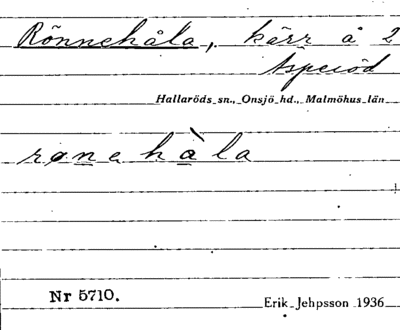 Rönnehåla, kärr å 2
Asperöd
Hallaröds sn., Onsjö hd., Malmöhus län
rønehàla
Nr 5710.
Erik Jehpsson 1936